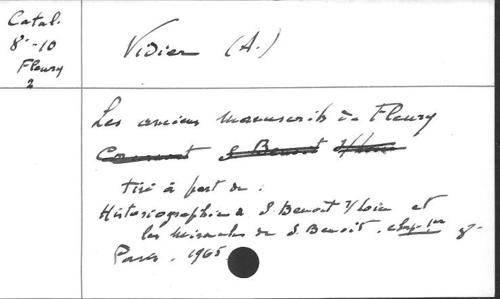 Catal.
8°-10
Fleury
2
Vidier (A.)
Les anciens manuscrits de Fleury
S Benoit s/Loire
Tiré à part de :
Historiographie à S. Benoit s/Loire et
les Miracles de S. Benoît. chap. 1er 8°
Paris, 1965